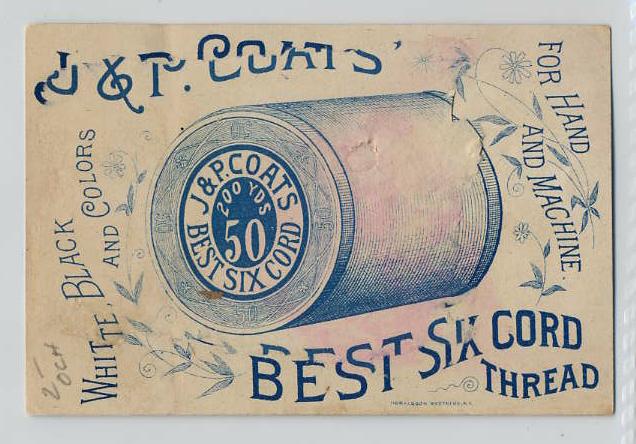 J & P. COATS'
FOR HAND
AND MACHINE.
WHITTE, BLACK
AND COLORS
J & P. COATS
200 YDS
50
BEST SIX CORD
50
BEST SIX CORD
THREAD